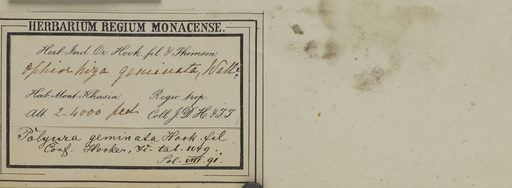 HERBARIUM REGIUM MONACENSE.
Herb. Ind. Or. Hook. fil. & Thomson
Ophiorrhiza geminata, Wall.
Hab. Mont. Khasia Regio trop.
Alt. 2-4000 ped. Coll. J.D.H. & T.T.
Polyura geminata Hook. fil.
Conf. Hooker, Ic. tab.
Sol. VIII 91.